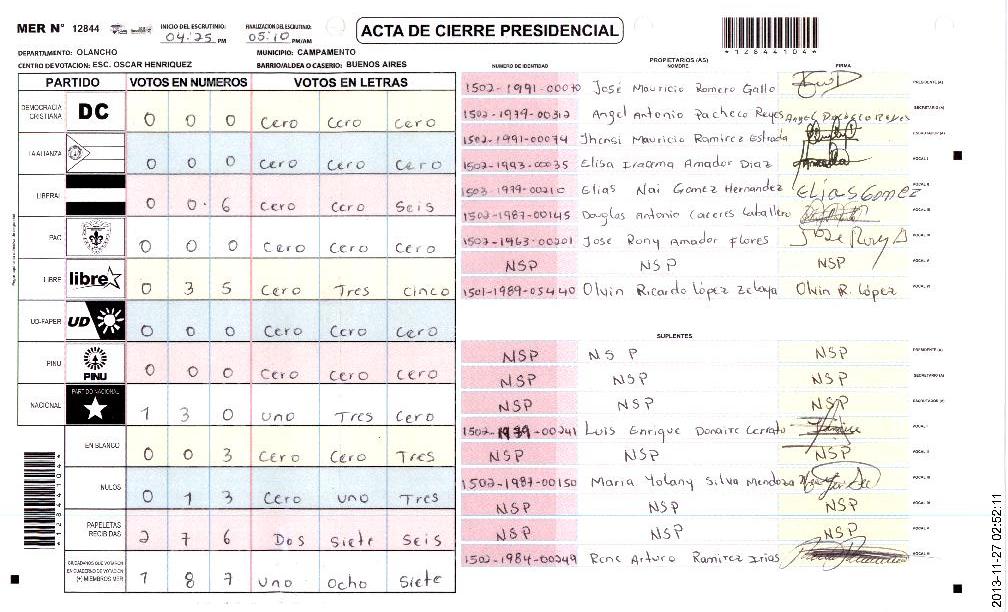 MER N° 12844 INICIO DEL ESCRUTINIO: 04:25 PM FINALIZACION DEL ESCRUTINIO: 05:10 PM/AM ACTA DE CIERRE PRESIDENCIAL
*12844104*
DEPARTAMENTO: OLANCHO MUNICIPIO: CAMPAMENTO
CENTRO DE VOTACION: ESC. OSCAR HENRIQUEZ BARRIO/ALDEA O CASERIO: BUENOS AIRES
PARTIDO VOTOS EN NUMEROS VOTOS EN LETRAS
DEMOCRACIA CRISTIANA DC 0 0 0 Cero Cero Cero
LA ALIANZA 0 0 0 Cero Cero Cero
LIBERAL 0 0 6 Cero Cero Seis
PAC 0 0 0 Cero Cero Cero
LIBRE libre 0 3 5 Cero Tres cinco
UD-FAPER UD 0 0 0 Cero Cero Cero
PINU PINU 0 0 0 Cero Cero Cero
NACIONAL PARTIDO NACIONAL 1 3 0 uno Tres Cero
EN BLANCO 0 0 3 Cero Cero Tres
NULOS 0 1 3 Cero uno Tres
PAPELETAS RECIBIDAS 2 7 6 Dos siete seis
CIUDADANOS QUE VOTARON EN CUADERNO DE VOTACION (+) MIEMBROS MER 1 8 7 uno ocho siete
*12844104*
PROPIETARIOS (AS)
NUMERO DE IDENTIDAD NOMBRE FIRMA
1502-1991-00070 José Mauricio Romero Gallo PRESIDENTE (A)
1502-1979-00312 Angel Antonio Pacheco Reyes Angel Pacheco Reyes SECRETARIO (A)
1502-1991-00074 Jhensi Mauricio Ramirez Estrada ESCRUTADOR (A)
1502-1993-00035 Elisa Iracema Amador Diaz VOCAL I
1503-1979-00210 Elias Nai Gomez Hernandez Elias Gomez VOCAL II
1502-1987-00145 Douglas Antonio Caceres Caballero VOCAL III
1502-1963-00201 Jose Rony Amador Flores Jose Rony A VOCAL IV
NSP NSP NSP VOCAL V
1501-1989-05440 Olvin Ricardo López Zelaya Olvin R. López VOCAL VI
SUPLENTES
NSP NSP NSP PRESIDENTE (A)
NSP NSP NSP SECRETARIO (A)
NSP NSP NSP ESCRUTADOR (A)
1502-1979-00241 Luis Enrique Donaire Cerrato VOCAL I
NSP NSP NSP VOCAL II
1502-1987-00150 Maria Yolany Silva Mendoza VOCAL III
NSP NSP NSP VOCAL IV
NSP NSP NSP VOCAL V
1502-1984-00249 Rene Arturo Ramirez Irias VOCAL VI
2013-11-27 02:52:11